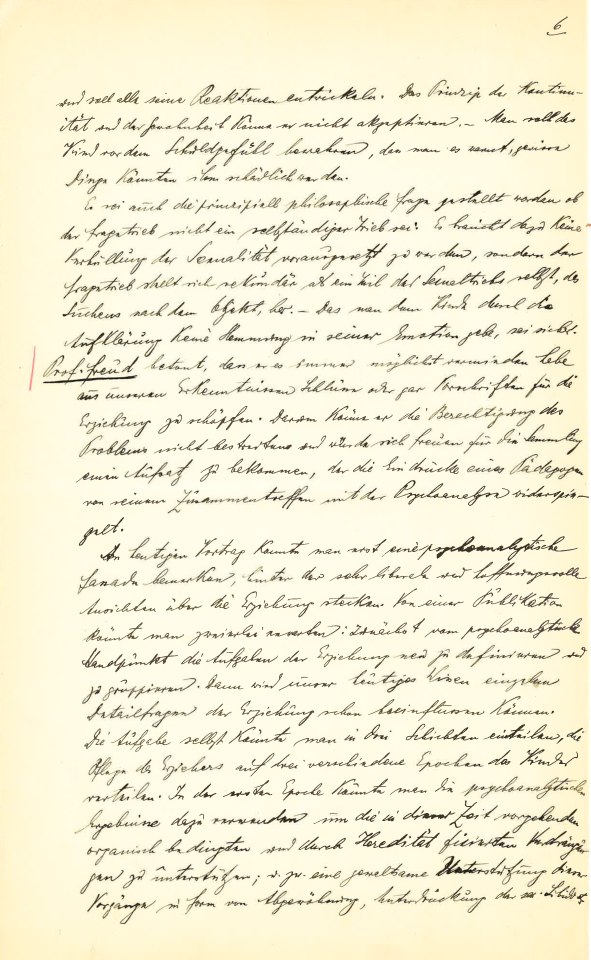 6
und soll alle seine Reaktionen entwickeln. Das Prinzip der Kontinu-
ität und der Gewohnheit könne er nicht akzeptieren. – Man soll das
Kind vor dem Schuldgefühl bewahren, den man es warnt, gewisse
Dinge könnten ihm schädlich werden.
Es sei auch die prinzipiell philosophische Frage gestellt worden ob
der Fragetrieb nicht ein selbständiger Trieb sei. Es braucht dazu keine
Verhüllung der Sexualität vorausgesetzt zu werden, sondern der
Fragetrieb stellt sich sekundär als ein Teil des Sexualtriebs selbst, des
Suchens nach dem Objekt, her. – Das man dem Kinde durch die
Aufklärung keine Hemmung in seiner Emotion gebe, sei sicher.
Prof. Freud betont, dass er es immer möglichst vermieden habe
aus unseren Erkenntnissen Schlüsse oder gar Vorschriften für die
Erziehung zu schöpfen. Darum könne er die Berechtigung des
Problems nicht bestreiten und würde sich freuen für die Sammlung
einen Aufsatz zu bekommen, der die Eindrücke eines Pädagogen
von seinem Zusammentreffen mit der Psychoanalyse widerspie-
gelt.
Am heutigen Vortrag konnte man erst eine psychoanalytische
Fassade bemerken, hinter der sehr liberale und hoffnungsvolle
Ansichten über die Erziehung stecken. Von einer Publikation
könnte man zweierlei erwarten: Zunächst vom psychoanalytischen
Standpunkt die Aufgaben der Erziehung neu zu definieren und
zu gruppieren. Dann wird unser heutiges Wissen einzelne
Detailfragen der Erziehung schon beeinflussen können.
Die Aufgabe selbst könnte man in drei Schichten einteilen, die
Pflege des Erziehers auf drei verschiedene Epochen des Kindes
verteilen. In der ersten Epoche könnte man die psychoanalytischen
Ergebnisse dazu verwenden um die in dieser Zeit vorgehenden
organisch bedingten und durch Heredität fixierten Verdrängun-
gen zu unterstützen; u. zw. eine gewaltsame Unterstützung dieser
Vorgänge in Form von Abgewöhnung, Unterdrückung der